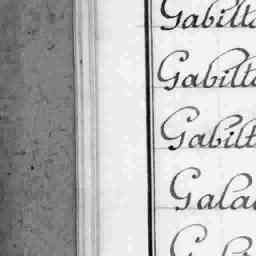 Gabilta
Gabilta
Gabilt
Gala